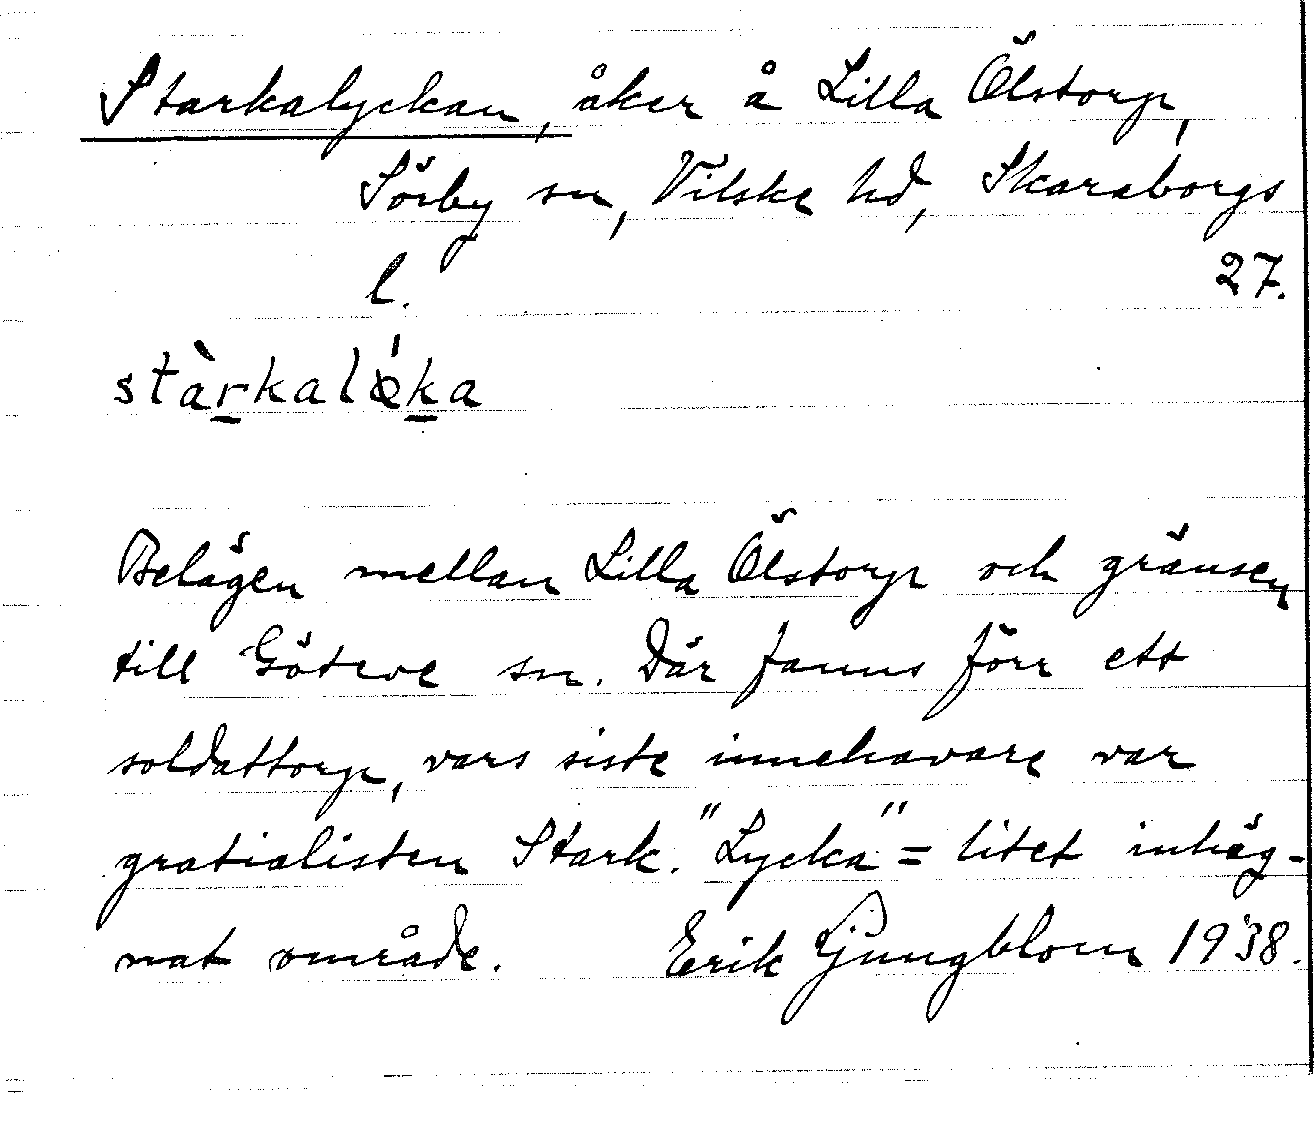 Starkalyckan, åker å Lilla Ölstorp,
Sörby sn, Vilske hd, Skaraborgs
l. 27.
stàrkalǿka
Belägen mellan Lilla Ölstorp och gränsen
till Göteve sn. Där fanns förr ett
soldattorp, vars siste innehavare var
gratialisten Stark. "Lycka" = litet inhäg-
nat område. Erik Ljungblom 1938.